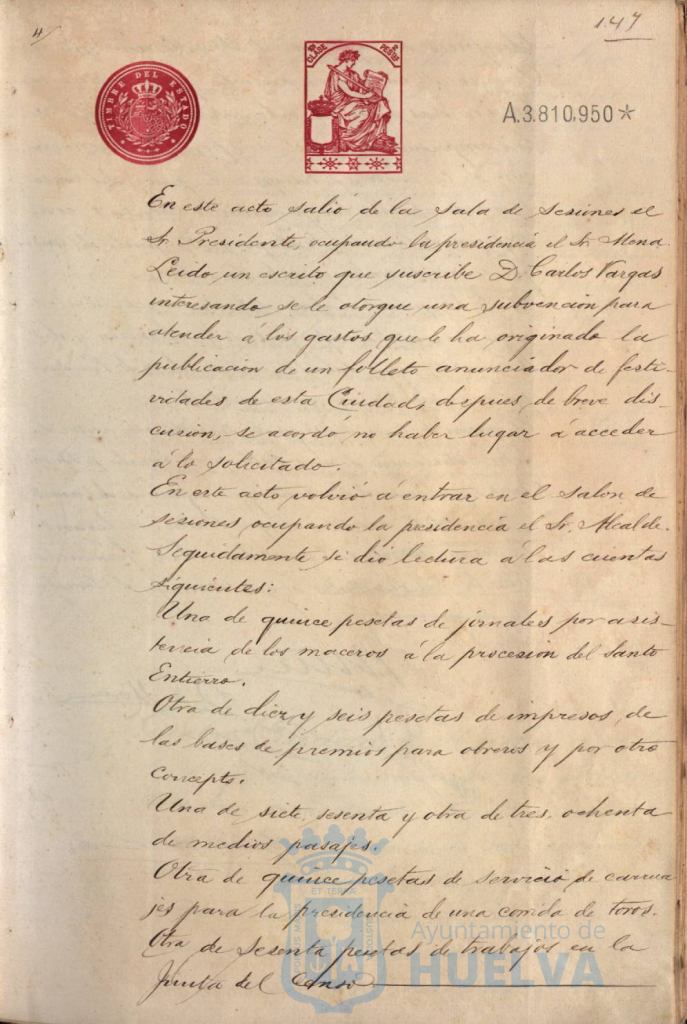 4
147
TIMBRE DEL ESTADO
CLASE
PESETAS
A.3.810,950*
En este acto salió de la sala de sesiones el
Sr. Presidente, ocupando la presidencia el Sr. Mena.
Leido un escrito que suscribe D. Carlos Vargas
interesando se le otorgue una subvencion para
atender á los gastos que le ha originado la
publicacion de un folleto anunciador de festi-
vidades de esta Ciudad, despues de breve dis-
cusion, se acordó no haber lugar á acceder
á lo solicitado.
En este acto volvió á entrar en el salon de
sesiones ocupando la presidencia el Sr. Alcalde.
Seguidamente se dió lectura á las cuentas
siguientes:
Una de quince pesetas de jornales por asis-
tencia de los maceros á la procesion del Santo
Entierro.
Otra de diez y seis pesetas de impresos de
las bases de premios para obreros y por otro
concepto.
Una de siete, sesenta y otra de tres, ochenta
de medios pasajes.
Otra de quince pesetas de servicio de carrua
jes para la presidencia de una corrida de toros.
Otra de sesenta pesetas de trabajos en la
Junta del Censo
Ayuntamiento de
HUELVA